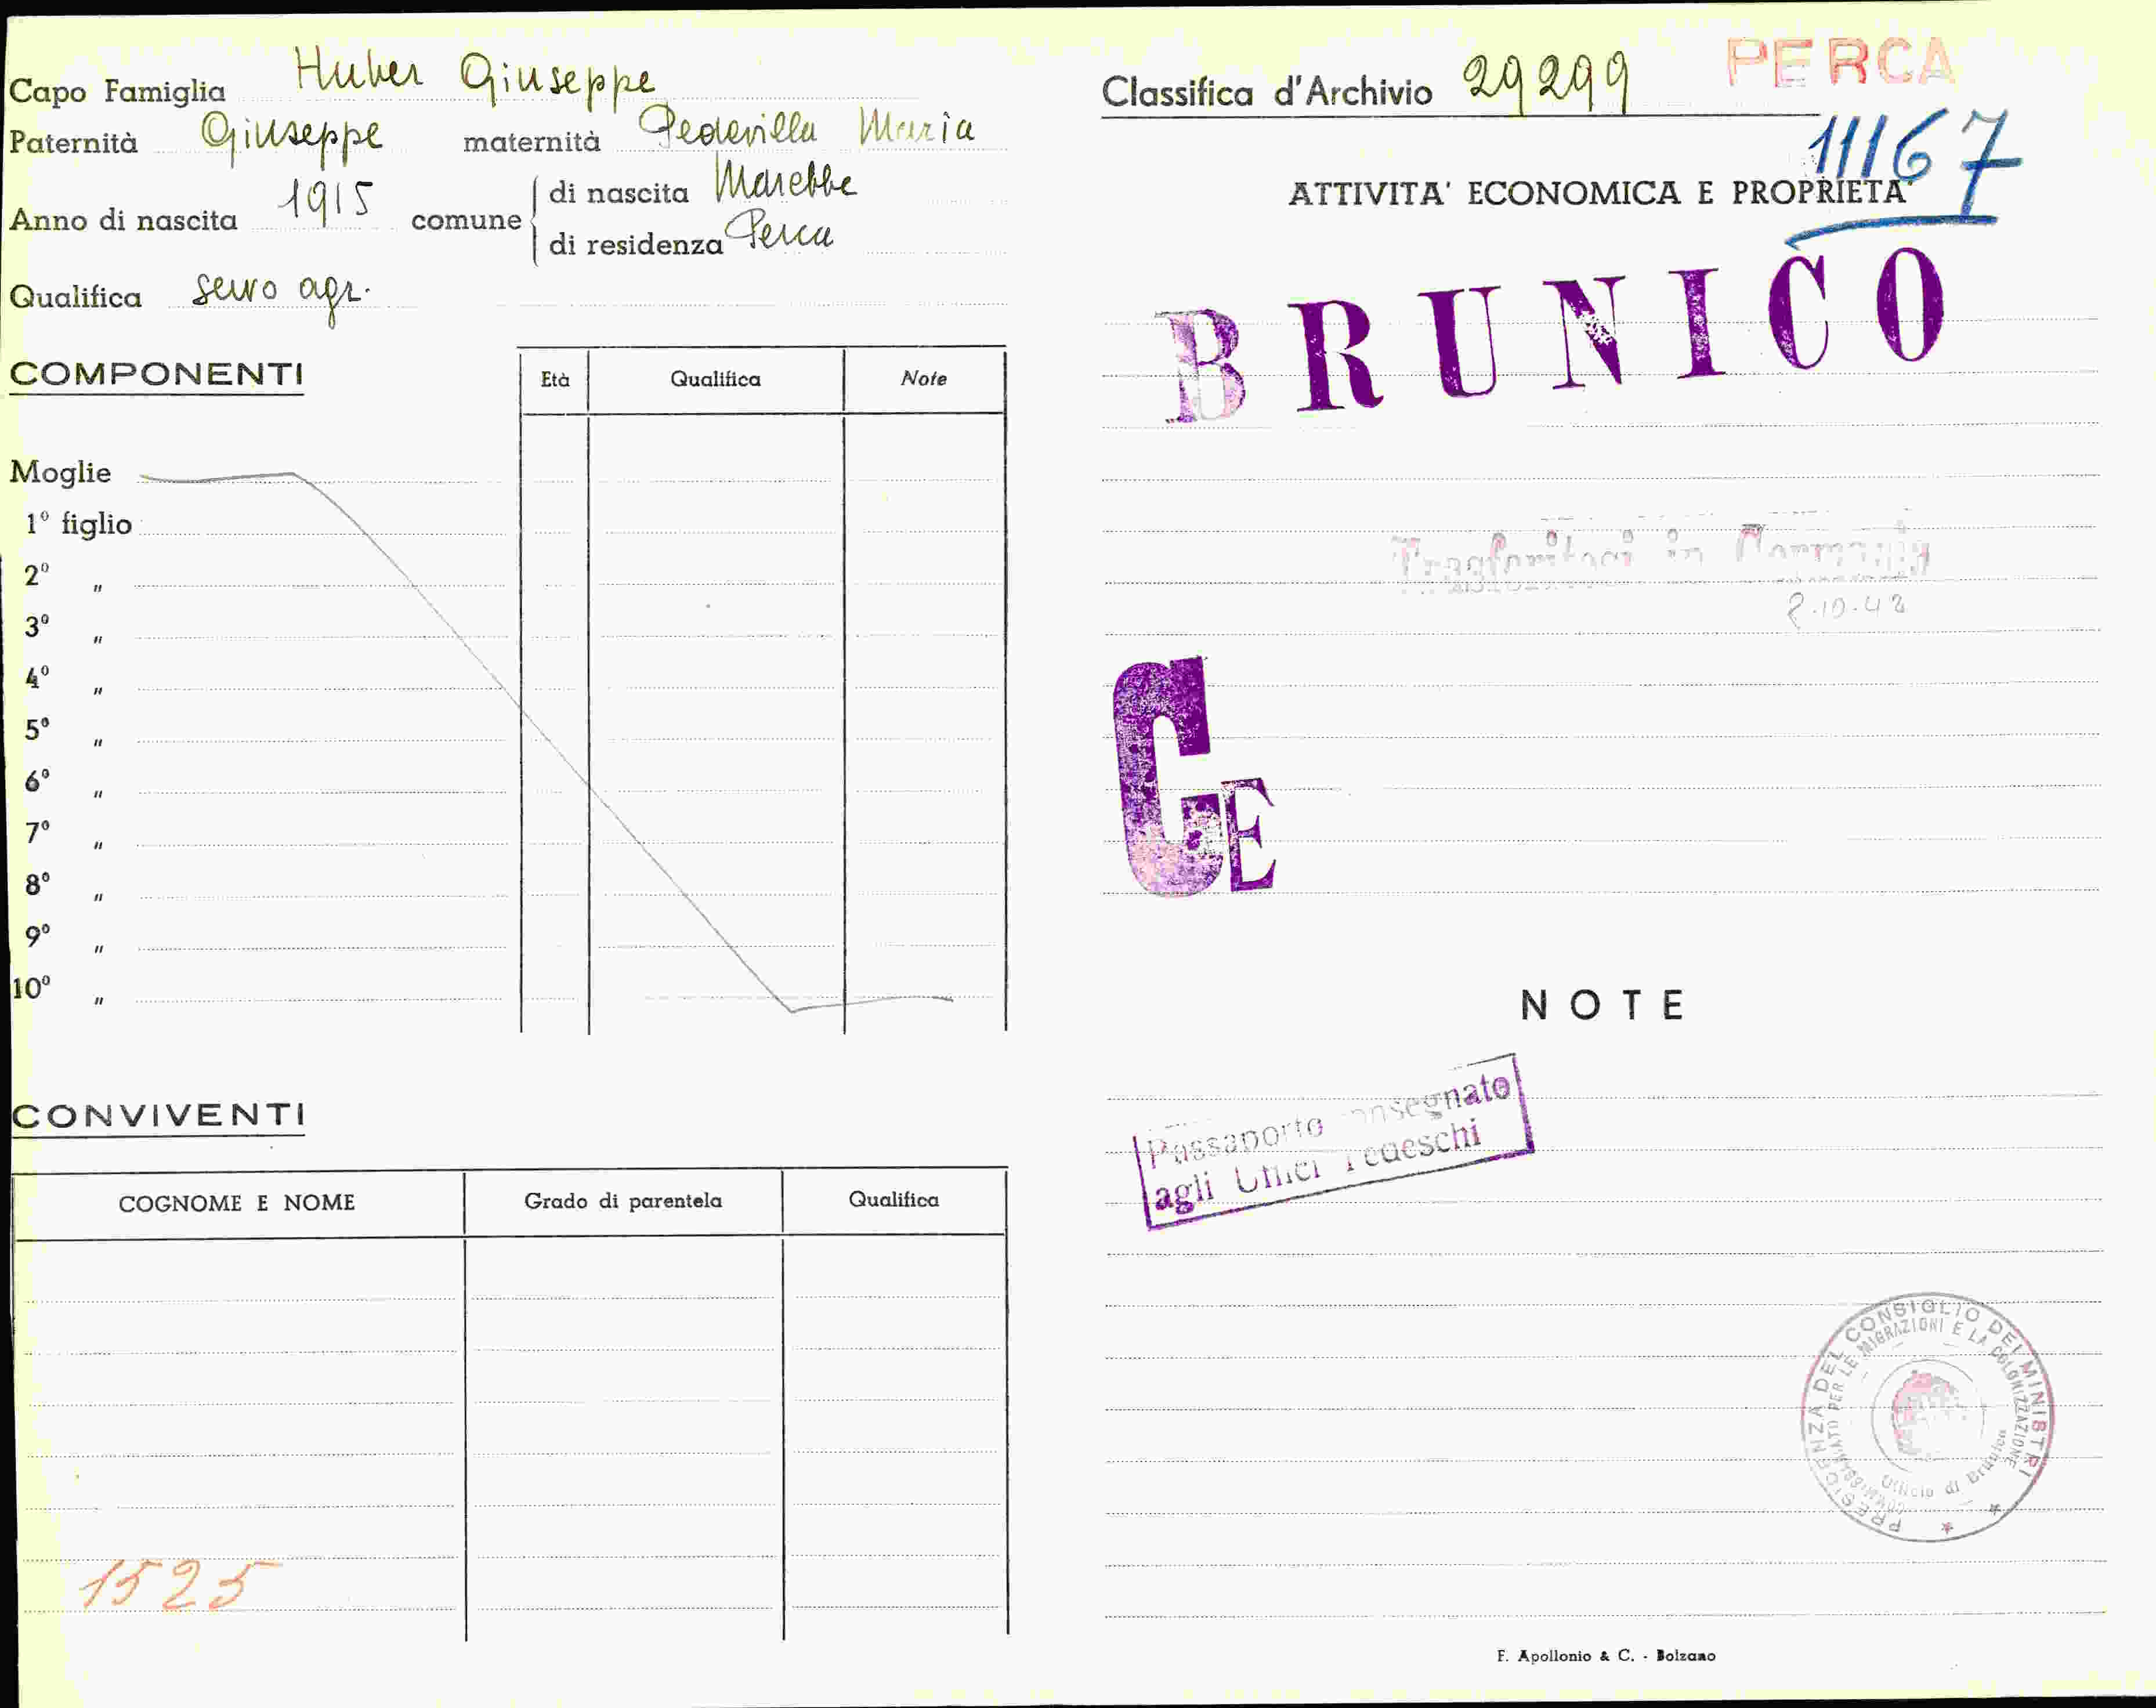 Capo Famiglia Huber Giuseppe
Paternità Giuseppe maternità Pedevilla Maria
Anno di nascita 1915 comune di nascita Marebbe
di residenza Perca
Qualifica servo agr.
COMPONENTI
Età Qualifica Note
Moglie
1º figlio
2º "
3º "
4º "
5º "
6º "
7º "
8º "
9º "
10º "
CONVIVENTI
COGNOME E NOME Grado di parentela Qualifica
1525
Classifica d'Archivio 29299 PERCA
11167
ATTIVITA' ECONOMICA E PROPRIETA'
BRUNICO
Trasferitosi in Germania
2.10.42
GE
NOTE
Passaporto consegnato
agli Uffici Tedeschi
PRESIDENZA DEL CONSIGLIO DEI MINISTRI
COMMISSARIATO PER LE MIGRAZIONI E LA COLONIZZAZIONE
Ufficio di Brunico
F. Apollonio & C. - Bolzano